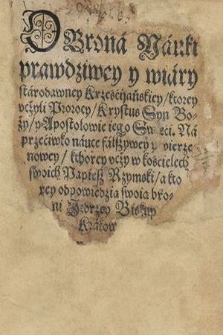 OBroná Náuki
prawdziwey y wiáry
stárodawney Krześcijáńskiey/ktorey
vczyli Prorocy/ Krystus Syn Bo-
ży/y Apostołowie iego Swięci. Ná
przećiwko náuce fałszywey y
nowey/ kthorey vczy w kościelech
swoich Papiesz Rzymski/ a kto
rey odpowiedzią swoią bro-
ni Jeorzey Biskup